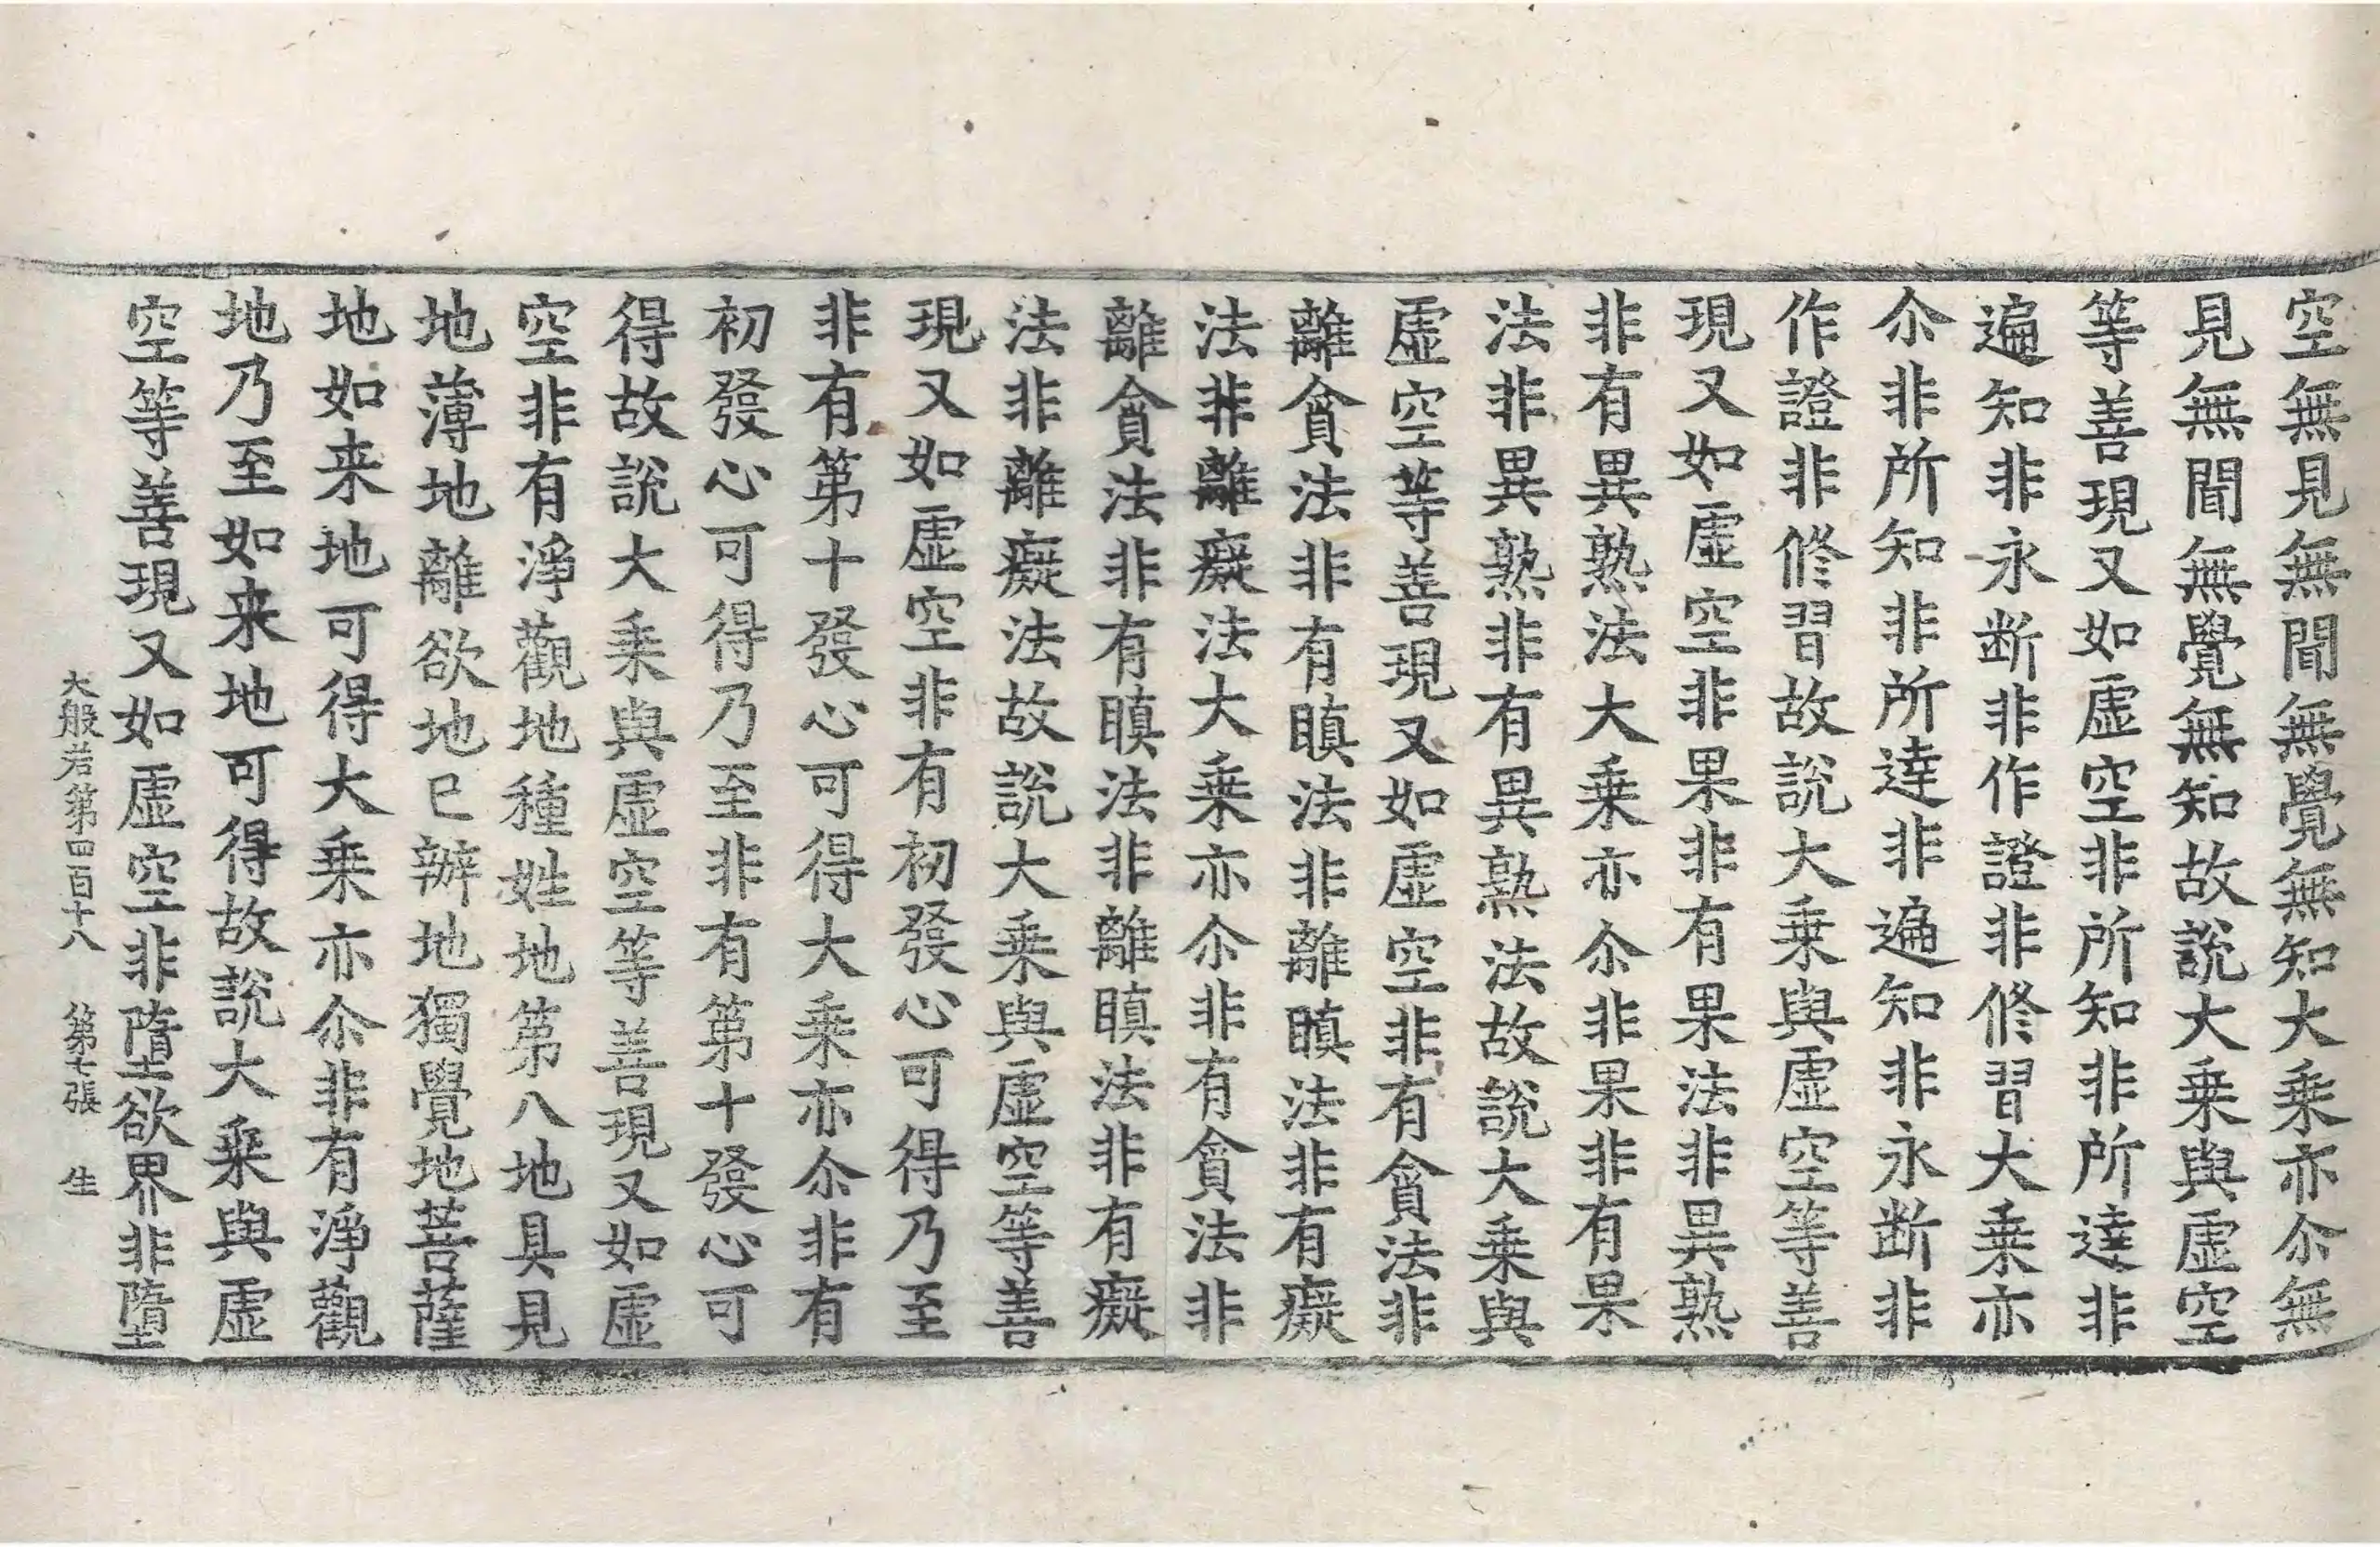 空無見無聞無覺無知大乗亦尒無
見無聞無覺無知故說大乗與虛空
等善現又如虛空非所知非所達非
遍知非永断非作證非修習大乗亦
尒非所知非所達非遍知非永断非
作證非修習故說大乗與虛空等善
現又如虛空非果非有果法非異熟
非有異熟法大乗亦尒非果非有果
法非異熟非有異熟法故說大乗與
虛空等善現又如虛空非有貪法非
離貪法非有瞋法非離瞋法非有癡
法非離癡法大乗亦尒非有貪法非
離貪法非有瞋法非離瞋法非有癡
法非離癡法故說大乗與虛空等善
現又如虛空非有初發心可得乃至
非有第十發心可得大乗亦尒非有
初發心可得乃至非有第十發心可
得故說大乗與虛空等善現又如虛
空非有淨觀地種姓地第八地具見
地薄地離欲地已辦地獨覺地菩薩
地如来地可得大乗亦尒非有淨觀
地乃至如来地可得故說大乗與虛
空等善現又如虛空非墮欲界非墮
大般若第四百十八 第七張 生